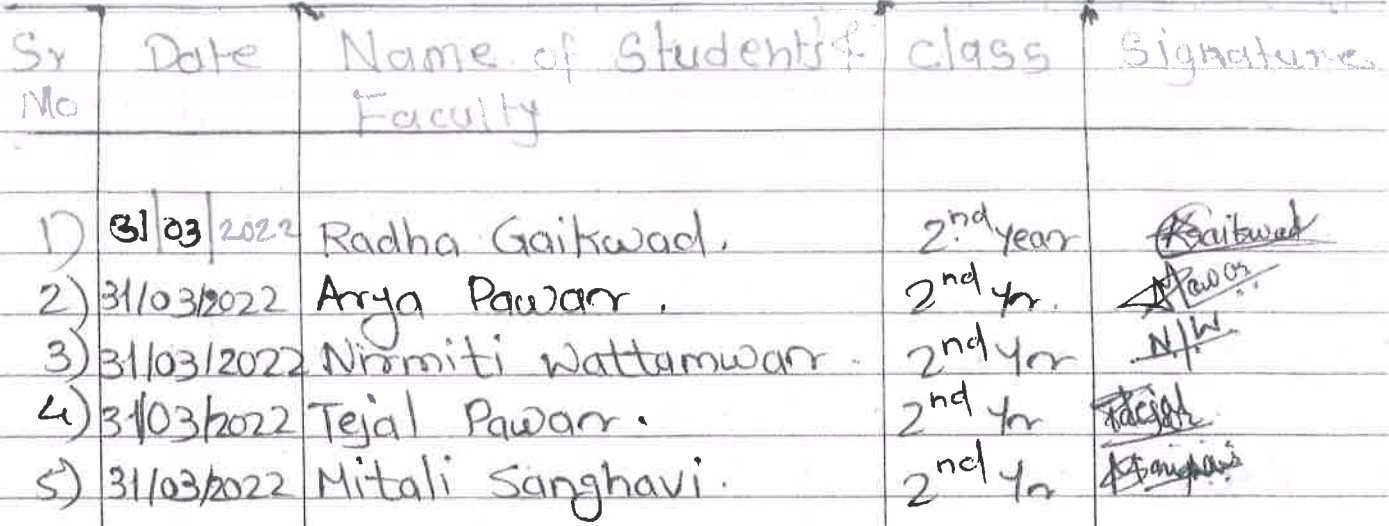 Sr Date Name of Students & Class Signature
No Faculty
1) 31/03/2022 Radha Gaikwad. 2nd year Gaikwad
2) 31/03/2022 Arya Pawar. 2nd yr. Pawar
3) 31/03/2022 Nirmiti Wattamwar. 2nd yr N/W.
4) 31/03/2022 Tejal Pawar. 2nd yr
5) 31/03/2022 Mitali Sanghavi. 2nd yr